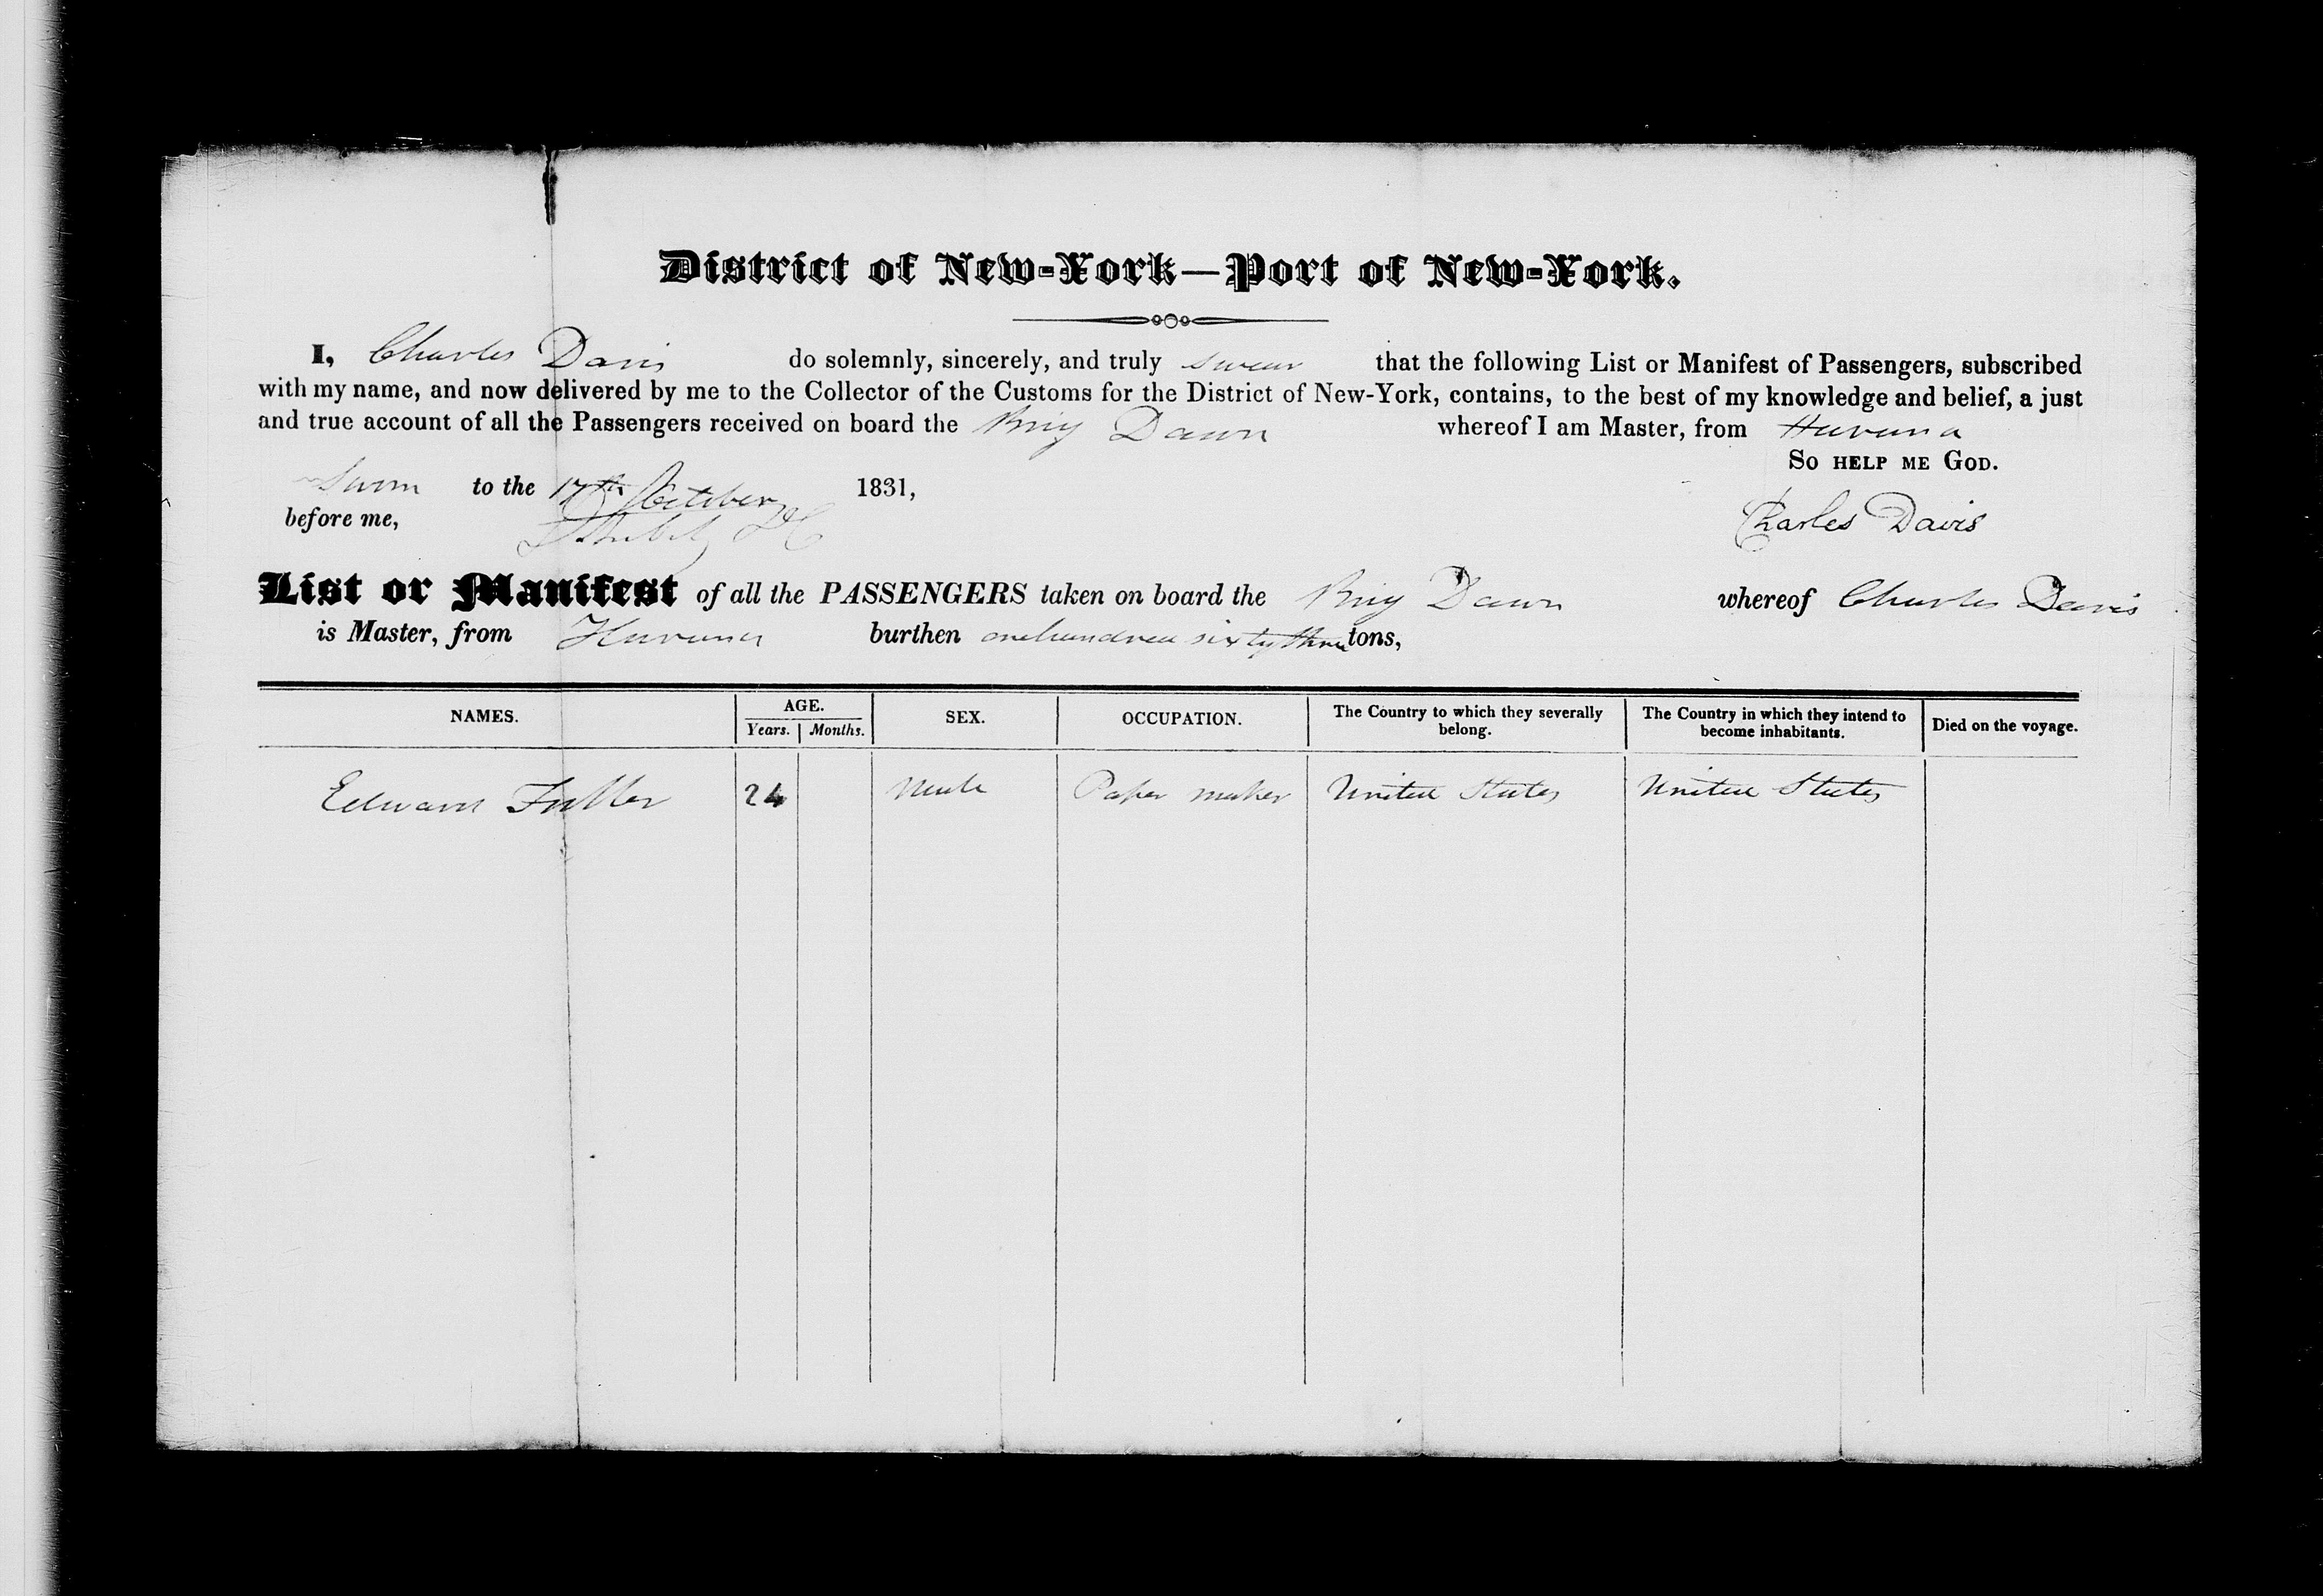 District of New-York—Port of New-York.
I, Charles Davis do solemnly, sincerely, and truly swear that the following List or Manifest of Passengers, subscribed
with my name, and now delivered by me to the Collector of the Customs for the District of New-York, contains, to the best of my knowledge and belief, a just
and true account of all the Passengers received on board the Brig Dawn whereof I am Master, from Havana
So help me God.
Sworn to the 17th October 1831,
before me,
Charles Davis
List or Manifest of all the PASSENGERS taken on board the Brig Dawn whereof Charles Davis
is Master, from Havana burthen one hundred sixty three tons,
NAMES. AGE. SEX. OCCUPATION. The Country to which they severally belong. The Country in which they intend to become inhabitants. Died on the voyage.
Years. Months.
Edward Fuller 24 Male Paper maker United States United States